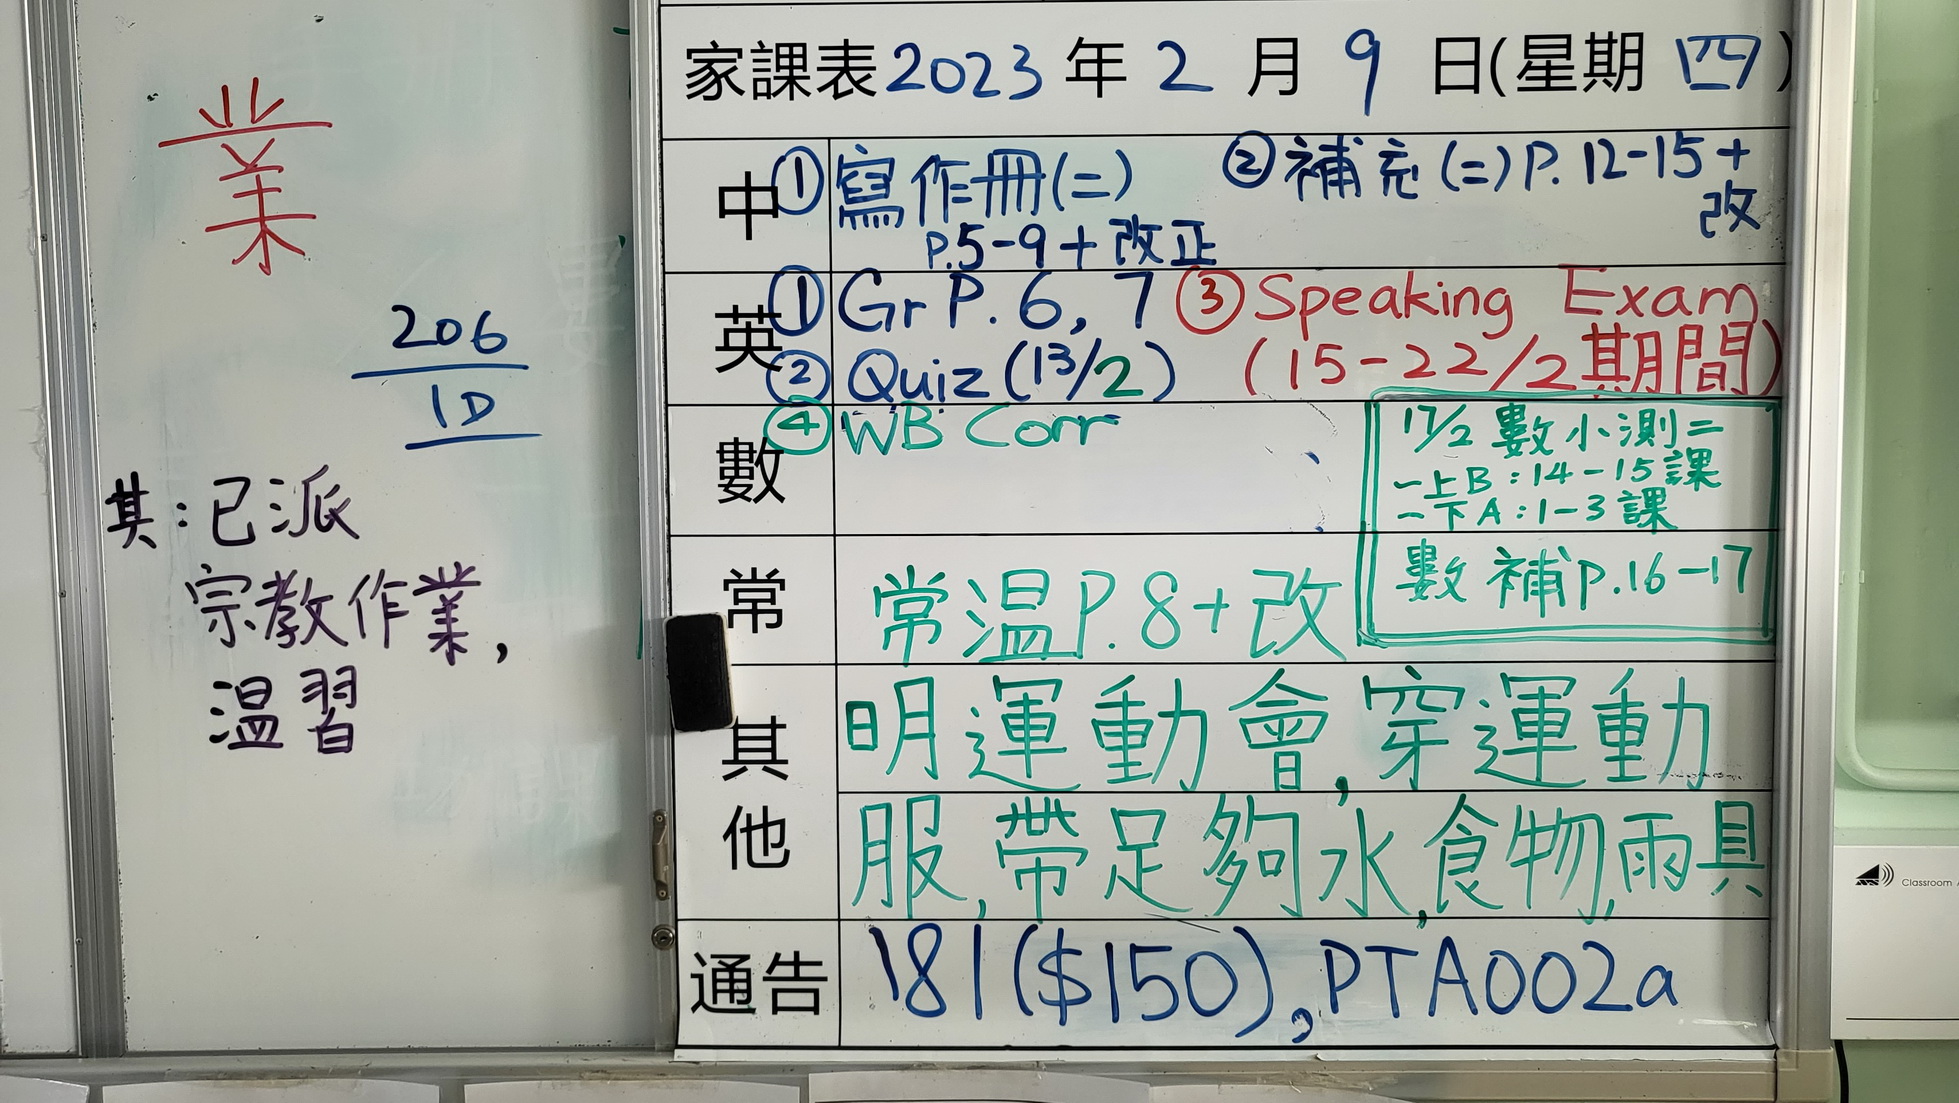 業
206
1D
其：已派
宗教作業，
温習
家課表2023年2月9日(星期四)
中
①寫作冊(二)
P.5-9+改正
②補充(二)P.12-15+
改
英
①Gr P.6,7
②Quiz(13/2)
③Speaking Exam
(15-22/2期間)
④WB Corr
數
17/2 數小測二
一上B:14-15課
一下A:1-3課
數補P.16-17
常
常温P.8+改
其他
明運動會,穿運動
服,帶足夠水,食物,雨具
通告
181($150),PTA002a
Classroom